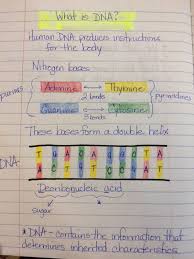 What is DNA?
Human DNA produces instructions
for the body
Nitrogen bases
purines Adenine Thymine pyrimidines
2 bonds
Guanine Cytosine
3 bonds
These bases form a double helix
DNA
Deoxribonucleic acid
sugar
* DNA - contains the information that
determines inherited characteristics